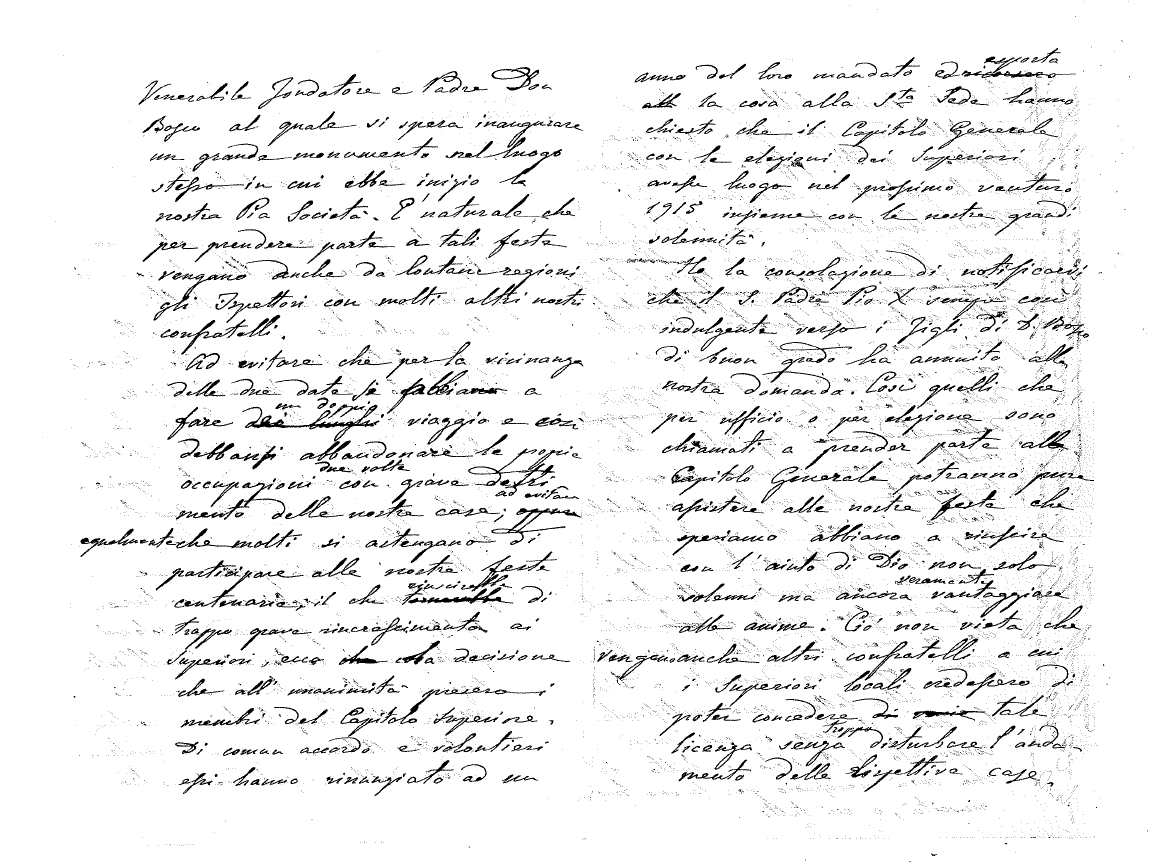 Venerabile Fondatore e Padre Don
Bosco al quale si spera inaugurare
un grande monumento nel luogo
stesso in cui ebbe inizio la
nostra Pia Società. E' naturale che
per prendere parte a tali feste
vengano anche da lontane regioni
gli Ispettori con molti altri nostri
confratelli.
Ad evitare che per la vicinanza
delle due date si abbiano a
un doppio
fare dei lunghi viaggio e così
debbansi abbandonare le proprie
due volte
occupazioni con grave detri
ad evitare
mento delle nostre case; oppure
egualmente che molti si astengano di
participare alle nostre feste
riuscirebbe
centenarie, il che tornerebbe di
troppo grave rincrescimento ai
Superiori, ecco che cosa decisione
che all' unanimità presero i
membri del Capitolo Superiore.
Di comun accordo e volontieri
essi hanno rinunziato ad un
esposta
anno del loro mandato ed
la cosa alla Sta Sede hanno
chiesto che il Capitolo Generale
con le elezioni dei Superiori
avesse luogo nel prossimo venturo
1915 insieme con le nostre grandi
solennità.
Ho la consolazione di notificarvi
che il S. Padre Pio X sempre così
indulgente verso i Figli di D. Bosco
di buon grado ha annuito alla
nostra domanda. Così quelli che
per ufficio o per elezione sono
chiamati a prender parte al
Capitolo Generale potranno pure
assistere alle nostre feste che
speriamo abbiano a riuscire
con l' aiuto di Dio non solo
veramente
solenni ma ancora vantaggiose
alle anime. Ciò non vieta che
vengano anche altri confratelli a cui
i Superiori locali credessero di
poter concedere di tale
troppo
licenza senza disturbare l' anda-
mento delle rispettive case.